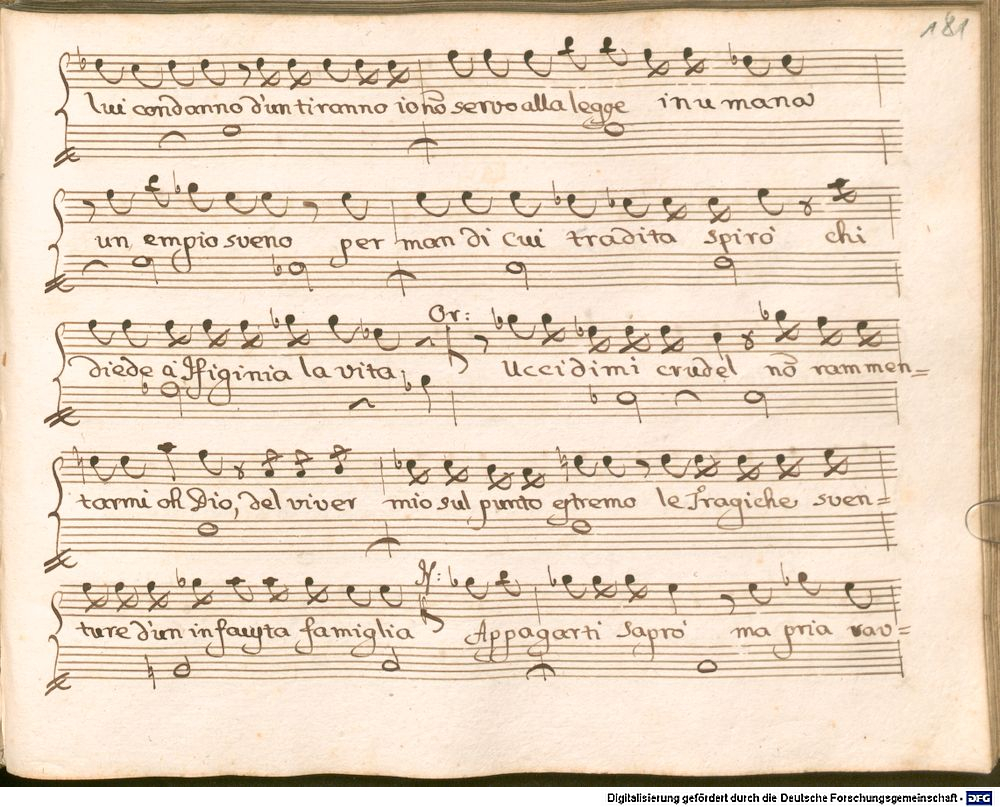 181
lui condanno d'un tiranno io nō servo alla legge inumana
un empio sveno per man di cui tradita spirò chi
Or:
diede à Ifiginia la vita Uccidimi crudel nō rammen=
tarmi oh Dio, del viver mio sul punto estremo le Tragiche sven=
If:
ture d'un infausta famiglia Appagarti saprò ma pria rav=
Digitalisierung gefördert durch die Deutsche Forschungsgemeinschaft - DFG